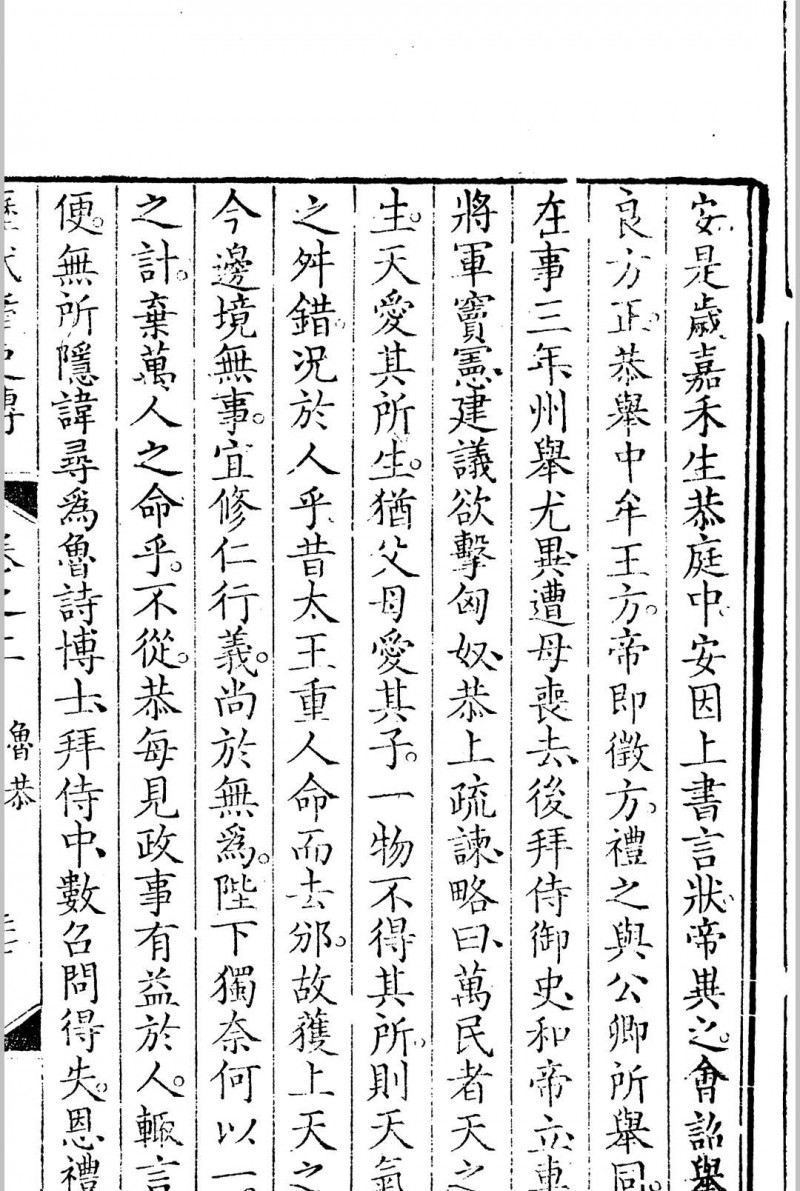 安是歲嘉禾生恭庭中安因上書言狀帝異之。會詔舉
良方正。恭舉中牟王方。帝即徵方。禮之與公卿所舉同。
在事三年州舉尤異遭母喪去後拜侍御史和帝立車
將軍竇憲建議欲擊匈奴恭上疏諫略曰萬民者天之
生。天愛其所生。猶父母愛其子。一物不得其所則天氣
之舛錯。况於人乎。昔太王重人命而去邠。故獲上天之
今邊境無事。宜修仁行義。尚於無爲。陛下獨奈何以一
之計。棄萬人之命乎。不從。恭每見政事有益於人。輒言
便。無所隱諱尋爲魯詩博士拜侍中數召問得失。恩禮
歷代循吏傳
卷之二
魯恭